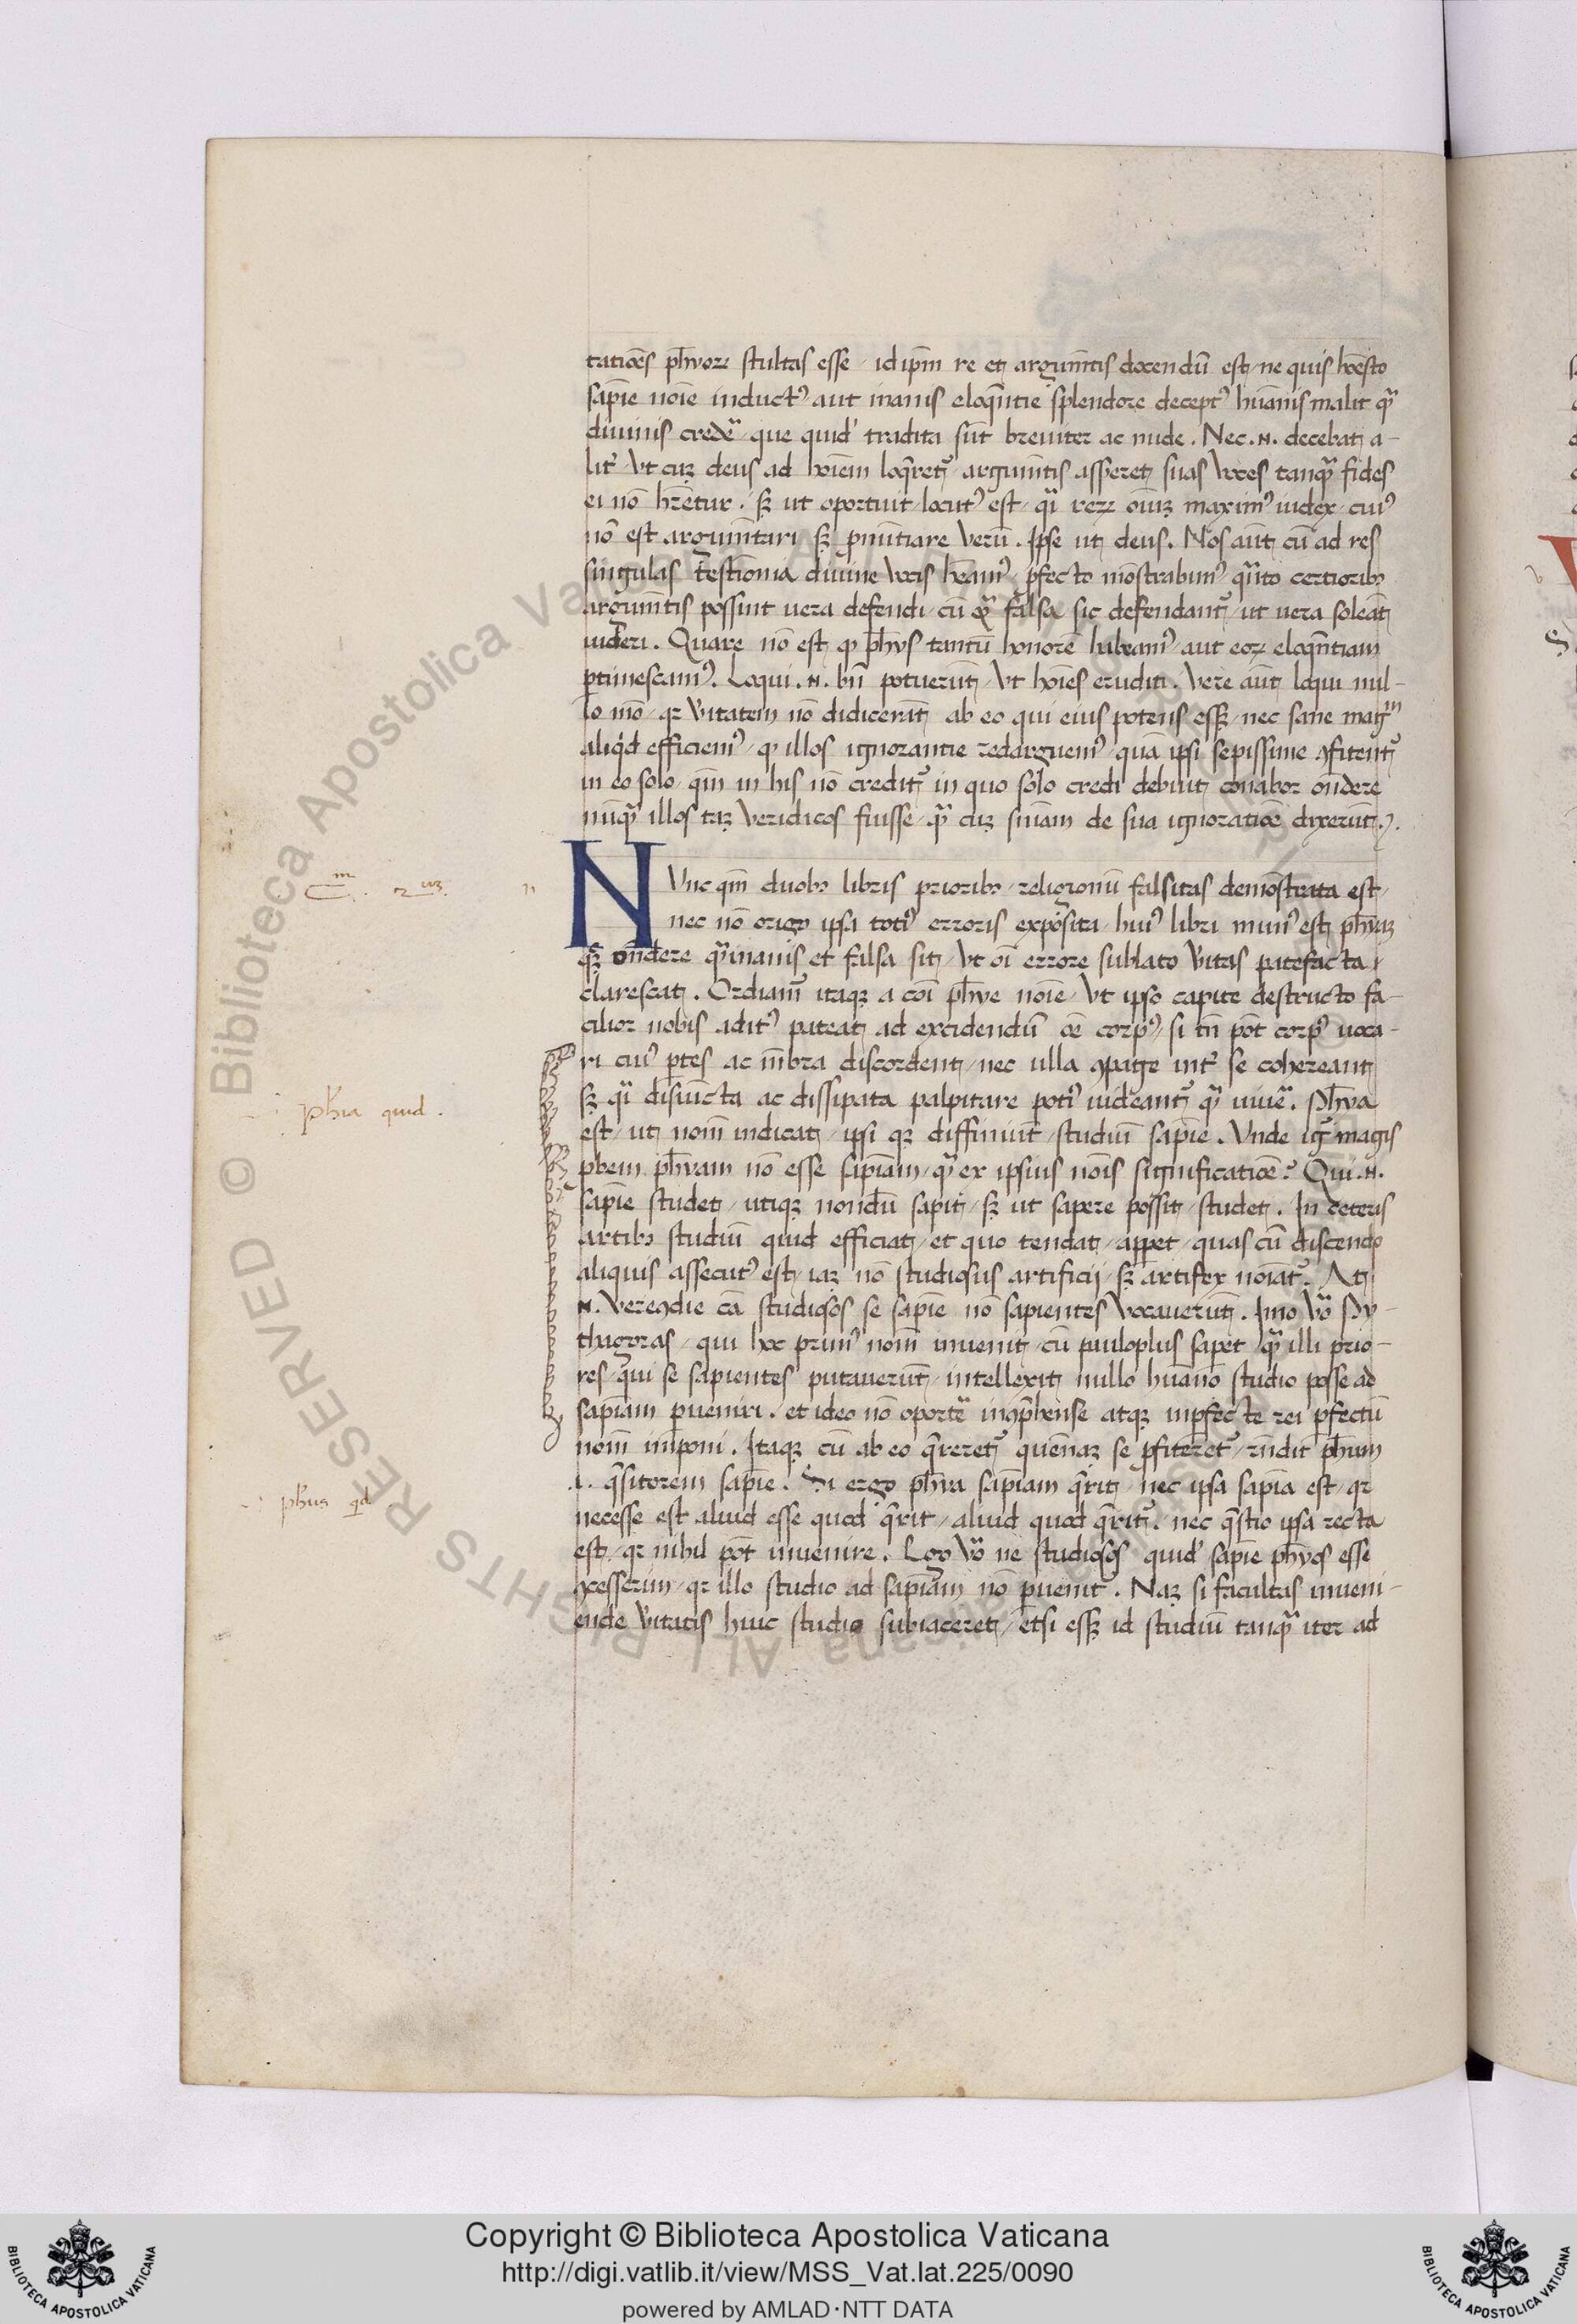 tatiões ph̃voꝝ stultas esse / id ip̃m re et argum̃tis docendũ est / ne quis hoẽsto
sapiẽ noĩe inductꝰ aut inanis eloq̃ntie splendore deceptꝰ hũanis malit qᷓ
diuinis credeᷓ / que quidʼ tradita sũt breuiter ac nude . Nec .n. decebat a-
litʼ / Vt cuʒ deus ad hoĩem loq̃retᷣ / argum̃tis assẽret suas voces tanqᷓ fides
ei nõ hr̃etur . sʒ ut oportuit / locutꝰ est / qᷓi reꝝ oĩuʒ maximꝰ iudex / cuiꝰ
nõ est argum̃tari sʒ ꝓnũtiare verũ . Ipse ut deus . Nos aũt cũ ad res
singulas testĩonia diuine vocis heamꝰ / ꝓfecto mõstrabimꝰ / qᷓnto certioribꝫ
argum̃tis possint uera defendi / cũ & falsa sic defendantᷣ / ut uera soleãt
uideri . Quare nõ est ꝙ ph̃ys tantũ honorẽ habeamꝰ / aut eoꝝ eloq̃ntiam
ꝑtimescamꝰ . Loqui .n. bñ potuerũt / Vt hoĩes eruditi . Vere aũt loqui nul-
lo mõ / qꝛ v̾itatem nõ didicerãt ab eo qui eius potens essʒ / nec sane mag̃m
aliqͥd efficiemꝰ / ꝙ illos ignorantie redarguemꝰ / quã ipsi sepissime ꝯfitentᷣ
in eo solo / qm̃ in his nõ creditᷣ in quo solo credi debuit / conabor oñdere
nũqᷓ illos taʒ veridicos fuisse / qᷓ cuʒ sñiam de sua ignoratiõe dixerũt .
C.m 2.uʒ.
NVnc qm̃ duobꝫ libris prioribꝫ / religionũ falsitas demõstrata est /
nec nõ origo ipsa totiꝰ erroris exposita / huiꝰ libri munꝰ est ph̃iaʒ
qʒ oñdere qᷓ inanis et falsa sit / Vt oĩ errore sublato v̾itas patefacta
clarescat . Ordiamᷣ itaqʒ a coĩ ph̃ye noĩe / Vt ipso capite destructo fa-
cilior nobis aditꝰ pateat ad excidendũ oẽ corpꝰ / si tñ põt corpꝰ uoca-
ri cuiꝰ ꝑtes ac m̃bra discordent / nec ulla ꝯpage intʼ se cohereant
sʒ qᷓi disiũcta ac dissipata palpitare potiꝰ uideantᷣ qᷓ uiueᷓ . Ph̃ya
ph̃ia quid .
est / ut nom̃ indicat / ipsi qʒ diffiniũt / studiũ sapiẽ . Vnde igᷣ magis
ꝓbem ph̃yam nõ esse sapiãm / qᷓ ex ipsius noĩs significatiõe ? Qui .n.
sapiẽ studet / utiqʒ nondũ sapit / sʒ ut sapere possit / studet . In ceteris
artibꝫ studiũ quid efficiat / et quo tendat / appet / quas cũ discendo
aliquis assecutꝰ est / iaʒ nõ studiosus artificij / sʒ artifex noĩatᷣ . At
.n. verecũdie cã studiosos se sapiẽ nõ sapientes vocauerũt . Imo v̾o Py-
thagoras / qui hoc primꝰ nom̃ inuenit / cũ pauloplus sapet / qᷓ illi prio-
res / qui se sapientes putauerũt / intellexit nullo hũano studio posse ad
sapiãm ꝑueniri . et ideo nõ oporteᷓ inꝯp̃hense atqʒ inpfecte rei ꝑfectũ
nom̃ imponi . Itaqʒ cũ ab eo q̃reretᷣ quẽnaʒ se ꝓfiteretᷣ / rñdit ph̃um
.i. q̃sitorem sapiẽ . Si ergo ph̃ya sapiãm q̃rit / nec ipsa sapiã est / qꝛ
ph̃us qͥd
necesse est aliud esse quod q̃rit / aliud quod q̃ritᷣ . nec q̃stio ipsa recta
est / qꝛ nihil põt inuenire . Ego v̾o ne studiosos quidʼ sapiẽ ph̃yos esse
ꝯcesserim / qꝛ illo studio ad sapiãm nõ ꝑuenit . Naʒ si facultas inueni-
ende v̾itatis huic studio subiaceret / etsi essʒ id studiũ tanqᷓ iter ad
Copyright © Biblioteca Apostolica Vaticana
http://digi.vatlib.it/view/MSS_Vat.lat.225/0090
powered by AMLAD·NTT DATA
BIBLIOTECA APOSTOLICA VATICANA
BIBLIOTECA APOSTOLICA VATICANA